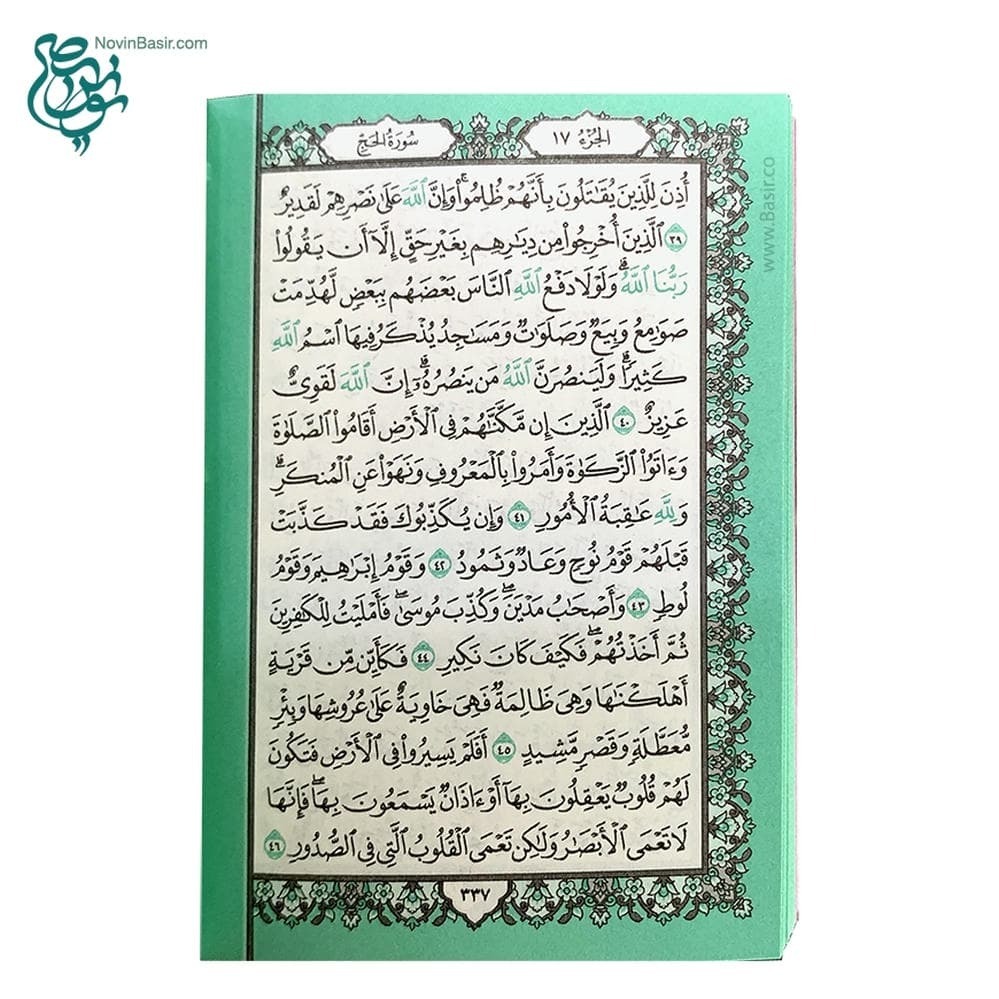 NovinBasir.com
الجزء ١٧
سورة الحج
أُذِنَ لِلَّذِينَ يُقَٰتَلُونَ بِأَنَّهُمْ ظُلِمُوا۟ۚ وَإِنَّ ٱللَّهَ عَلَىٰ نَصْرِهِمْ لَقَدِيرٌ
٣٩ ٱلَّذِينَ أُخْرِجُوا۟ مِن دِيَٰرِهِم بِغَيْرِ حَقٍّ إِلَّآ أَن يَقُولُوا۟
رَبُّنَا ٱللَّهُۗ وَلَوْلَا دَفْعُ ٱللَّهِ ٱلنَّاسَ بَعْضَهُم بِبَعْضٍ لَّهُدِّمَتْ
صَوَٰمِعُ وَبِيَعٌ وَصَلَوَٰتٌ وَمَسَٰجِدُ يُذْكَرُ فِيهَا ٱسْمُ ٱللَّهِ
كَثِيرًاۗ وَلَيَنصُرَنَّ ٱللَّهُ مَن يَنصُرُهُۥٓۗ إِنَّ ٱللَّهَ لَقَوِىٌّ
عَزِيزٌ ٤٠ ٱلَّذِينَ إِن مَّكَّنَّٰهُمْ فِى ٱلْأَرْضِ أَقَامُوا۟ ٱلصَّلَوٰةَ
وَءَاتَوُا۟ ٱلزَّكَوٰةَ وَأَمَرُوا۟ بِٱلْمَعْرُوفِ وَنَهَوْا۟ عَنِ ٱلْمُنكَرِۗ
وَلِلَّهِ عَٰقِبَةُ ٱلْأُمُورِ ٤١ وَإِن يُكَذِّبُوكَ فَقَدْ كَذَّبَتْ
قَبْلَهُمْ قَوْمُ نُوحٍ وَعَادٌ وَثَمُودُ ٤٢ وَقَوْمُ إِبْرَٰهِيمَ وَقَوْمُ
لُوطٍ ٤٣ وَأَصْحَٰبُ مَدْيَنَۖ وَكُذِّبَ مُوسَىٰۖ فَأَمْلَيْتُ لِلْكَٰفِرِينَ
ثُمَّ أَخَذْتُهُمْۖ فَكَيْفَ كَانَ نَكِيرِ ٤٤ فَكَأَيِّن مِّن قَرْيَةٍ
أَهْلَكْنَٰهَا وَهِىَ ظَالِمَةٌ فَهِىَ خَاوِيَةٌ عَلَىٰ عُرُوشِهَا وَبِئْرٍ
مُّعَطَّلَةٍ وَقَصْرٍ مَّشِيدٍ ٤٥ أَفَلَمْ يَسِيرُوا۟ فِى ٱلْأَرْضِ فَتَكُونَ
لَهُمْ قُلُوبٌ يَعْقِلُونَ بِهَآ أَوْ ءَاذَانٌ يَسْمَعُونَ بِهَاۖ فَإِنَّهَا
لَا تَعْمَى ٱلْأَبْصَٰرُ وَلَٰكِن تَعْمَى ٱلْقُلُوبُ ٱلَّتِى فِى ٱلصُّدُورِ ٤٦
٣٣٧
www.Basir.co